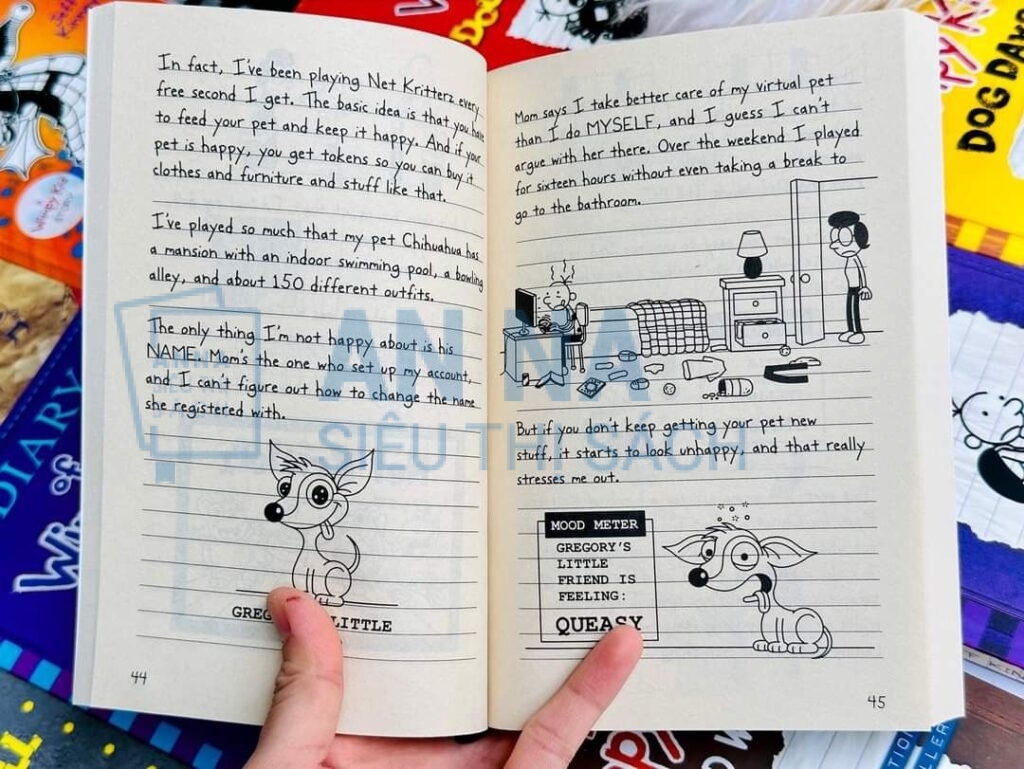 In fact, I've been playing Net Kritterz every
free second I get. The basic idea is that you have
to feed your pet and keep it happy. And if your
pet is happy, you get tokens so you can buy it
clothes and furniture and stuff like that.
I've played so much that my pet Chihuahua has
a mansion with an indoor swimming pool, a bowling
alley, and about 150 different outfits.
The only thing I'm not happy about is his
NAME. Mom's the one who set up my account,
and I can't figure out how to change the name
she registered with.
LITTLE
44
Mom says I take better care of my virtual pet
than I do MYSELF, and I guess I can't
argue with her there. Over the weekend I played
for sixteen hours without even taking a break to
go to the bathroom.
But if you don't keep getting your pet new
stuff, it starts to look unhappy, and that really
stresses me out.
MOOD METER
GREGORY'S
LITTLE
FRIEND IS
FEELING:
QUEASY
45
AN NA
SIÊU THỊ SÁCH
DOG DAYS
DIARY
Wimpy Kid